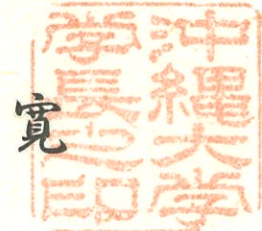 沖縄大学
学長之印
寛